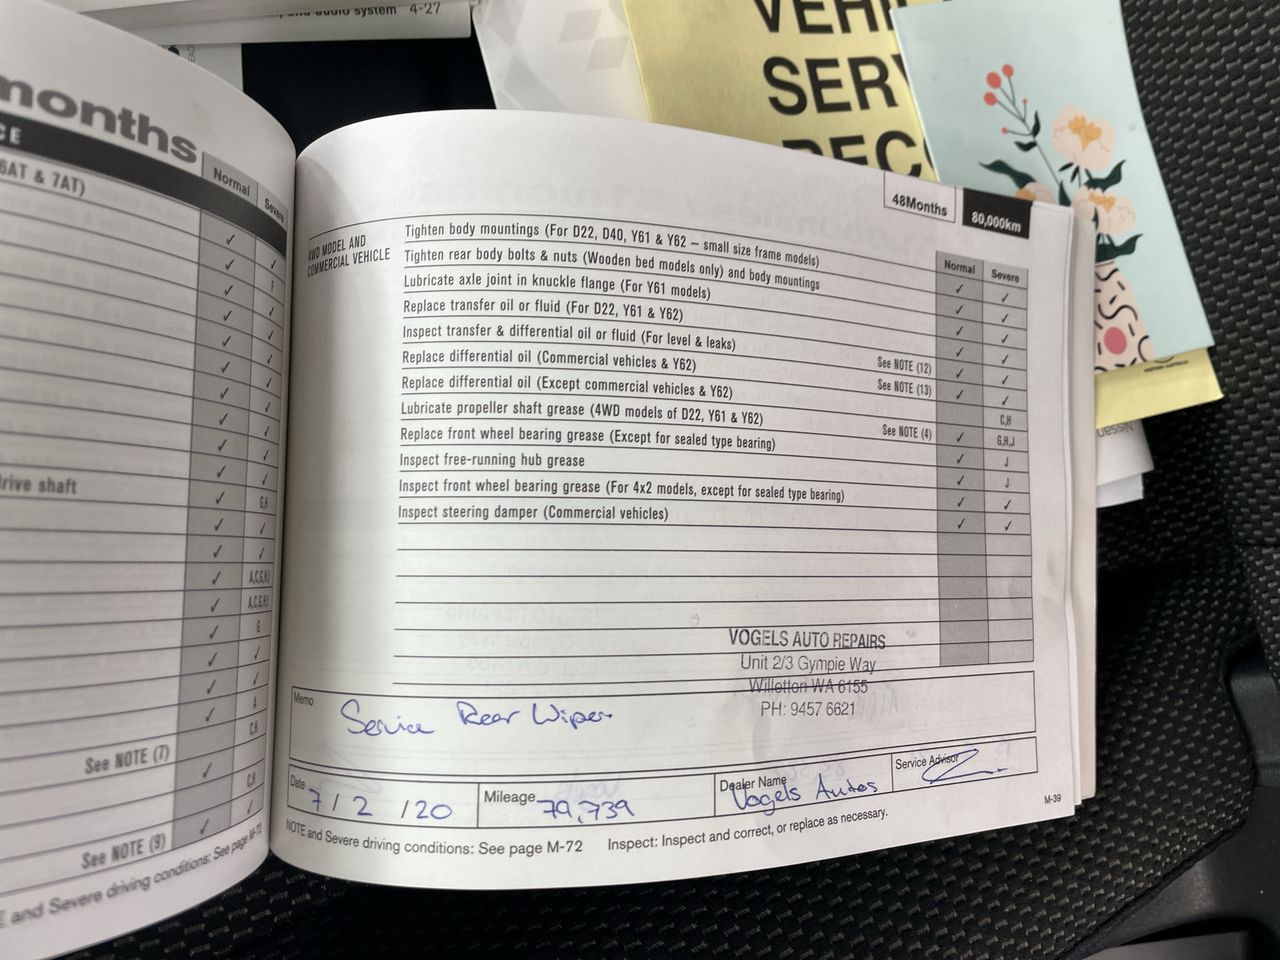 and audio system 4-27
VEHI
SERV
RECO
months
CE
Normal
Severe
6AT & 7AT)
F
rive shaft
G,H
A,C,G,H,I
A,C,G,H,I
G
A
C,H
See NOTE (7)
C,H
See NOTE (9)
E and Severe driving conditions: See page M-72
48Months
80,000km
4WD MODEL AND
COMMERCIAL VEHICLE
Normal
Severe
Tighten body mountings (For D22, D40, Y61 & Y62 – small size frame models) ✓ ✓
Tighten rear body bolts & nuts (Wooden bed models only) and body mountings ✓ ✓
Lubricate axle joint in knuckle flange (For Y61 models) ✓ ✓
Replace transfer oil or fluid (For D22, Y61 & Y62) ✓ ✓
Inspect transfer & differential oil or fluid (For level & leaks) ✓ ✓
Replace differential oil (Commercial vehicles & Y62) See NOTE (12) ✓ ✓
Replace differential oil (Except commercial vehicles & Y62) See NOTE (13) C,H
Lubricate propeller shaft grease (4WD models of D22, Y61 & Y62) ✓ G,H,J
Replace front wheel bearing grease (Except for sealed type bearing) See NOTE (4) ✓ J
Inspect free-running hub grease ✓ J
Inspect front wheel bearing grease (For 4x2 models, except for sealed type bearing) ✓ ✓
Inspect steering damper (Commercial vehicles) ✓ ✓
VOGELS AUTO REPAIRS
Unit 2/3 Gympie Way
Willetton WA 6155
PH: 9457 6621
Memo
Service Rear Wiper
Date 7/2/20
Mileage 79,739
Dealer Name Vogels Autos
Service Advisor
M-39
NOTE and Severe driving conditions: See page M-72 Inspect: Inspect and correct, or replace as necessary.
Nissan